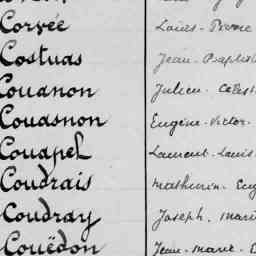 Corvée Louis-Pierre
Costuas Jean-Baptist
Couanon Julien-Célest
Couasnon Eugène-Victor-
Couapel Laurent-Louis
Coudrais Mathurin-Eug
Coudray Joseph-Marie
Couëdon Jean-Marie-